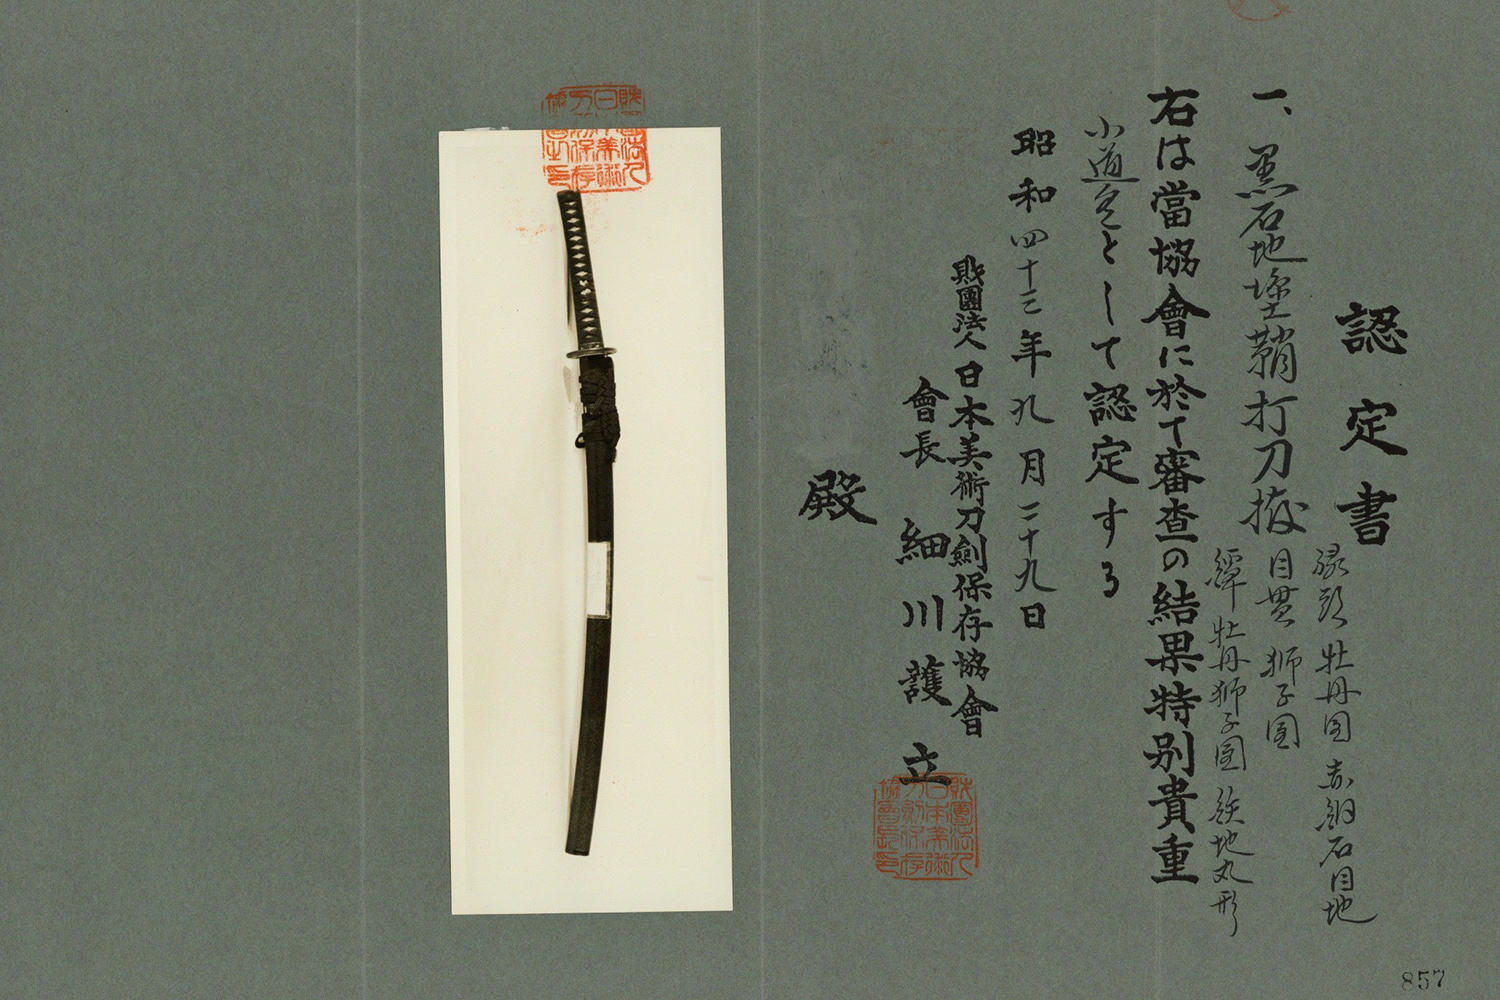 認定書
一、黒石地塗鞘打刀拵
縁頭 牡丹図 赤銅石目地
目貫 獅子図
鐔 牡丹獅子図 鉄地丸形
右は當協會に於て審査の結果特別貴重
小道具として認定する
昭和四十三年九月二十九日
財團法人日本美術刀劍保存協會
會長 細川護立
殿
857